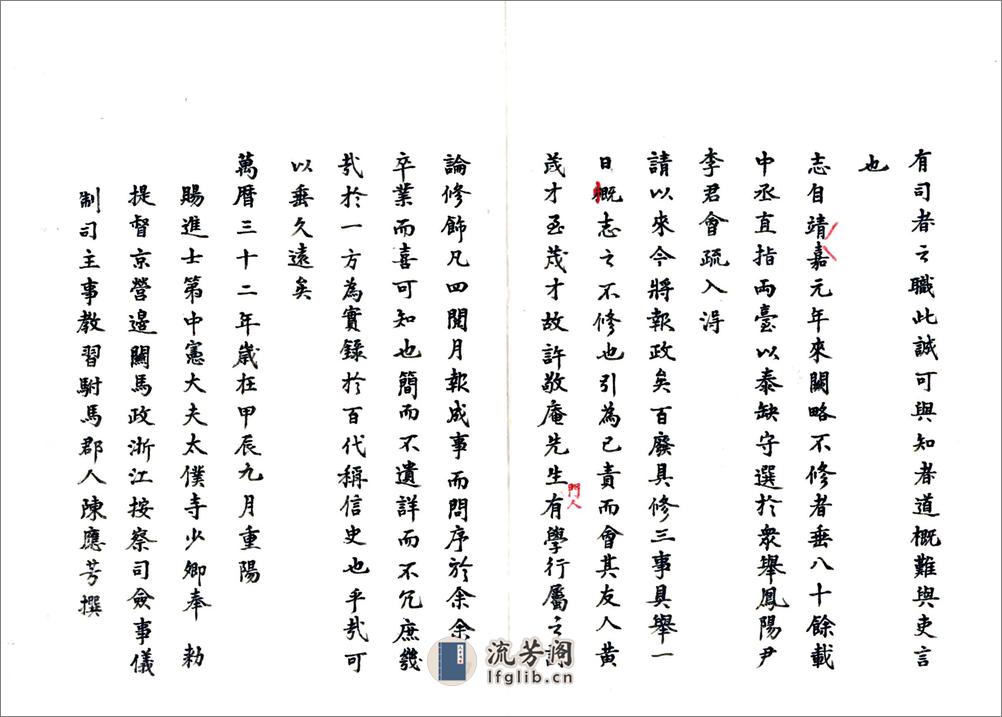 有司者之職此誠可與知者道概難與吏言
也
志自靖嘉元年來闕略不修者垂八十餘載
中丞直指兩臺以泰缺守選於衆舉鳳陽尹
李君會疏入淂
請以來今將報政矣百廢具修三事具舉一
日概志之不修也引為己責而會其友人黄
茂才至茂才故許敬庵先生門人有學行屬之
論修飾凡四閱月報成事而問序於余余
卒業而喜可知也簡而不遺詳而不冗庶幾
㢤於一方為實錄於百代稱信史也乎㢤可
以垂久遠矣
萬曆三十二年歲在甲辰九月重陽
賜進士第中憲大夫太僕寺少卿奉 勅
提督京營邊關馬政浙江按察司僉事儀
制司主事教習駙馬郡人陳應芳撰
流芳阁
lfglib.cn